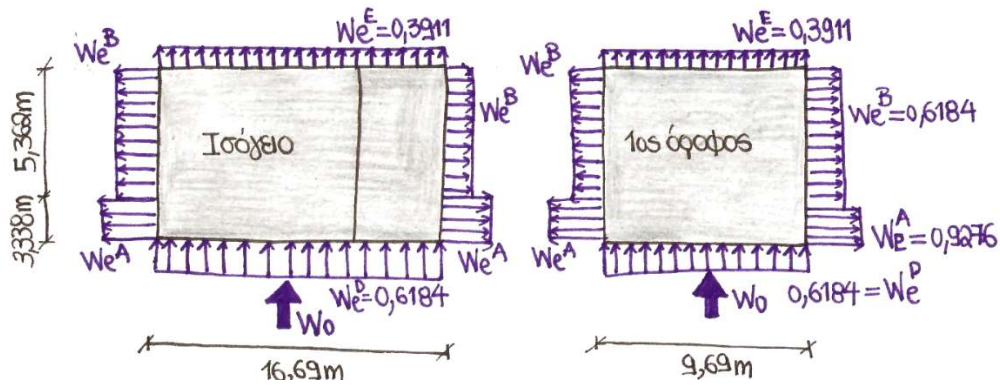 We^E=0,3911
We^B
We^B
5,362m
3,338m
Ισόγειο
We^A
We^A
We^D=0,6184
Wo
16,69m
We^E=0,3911
We^B
We^B=0,6184
1ος όροφος
We^A
We^A=0,9276
Wo
0,6184=We^D
9,69m